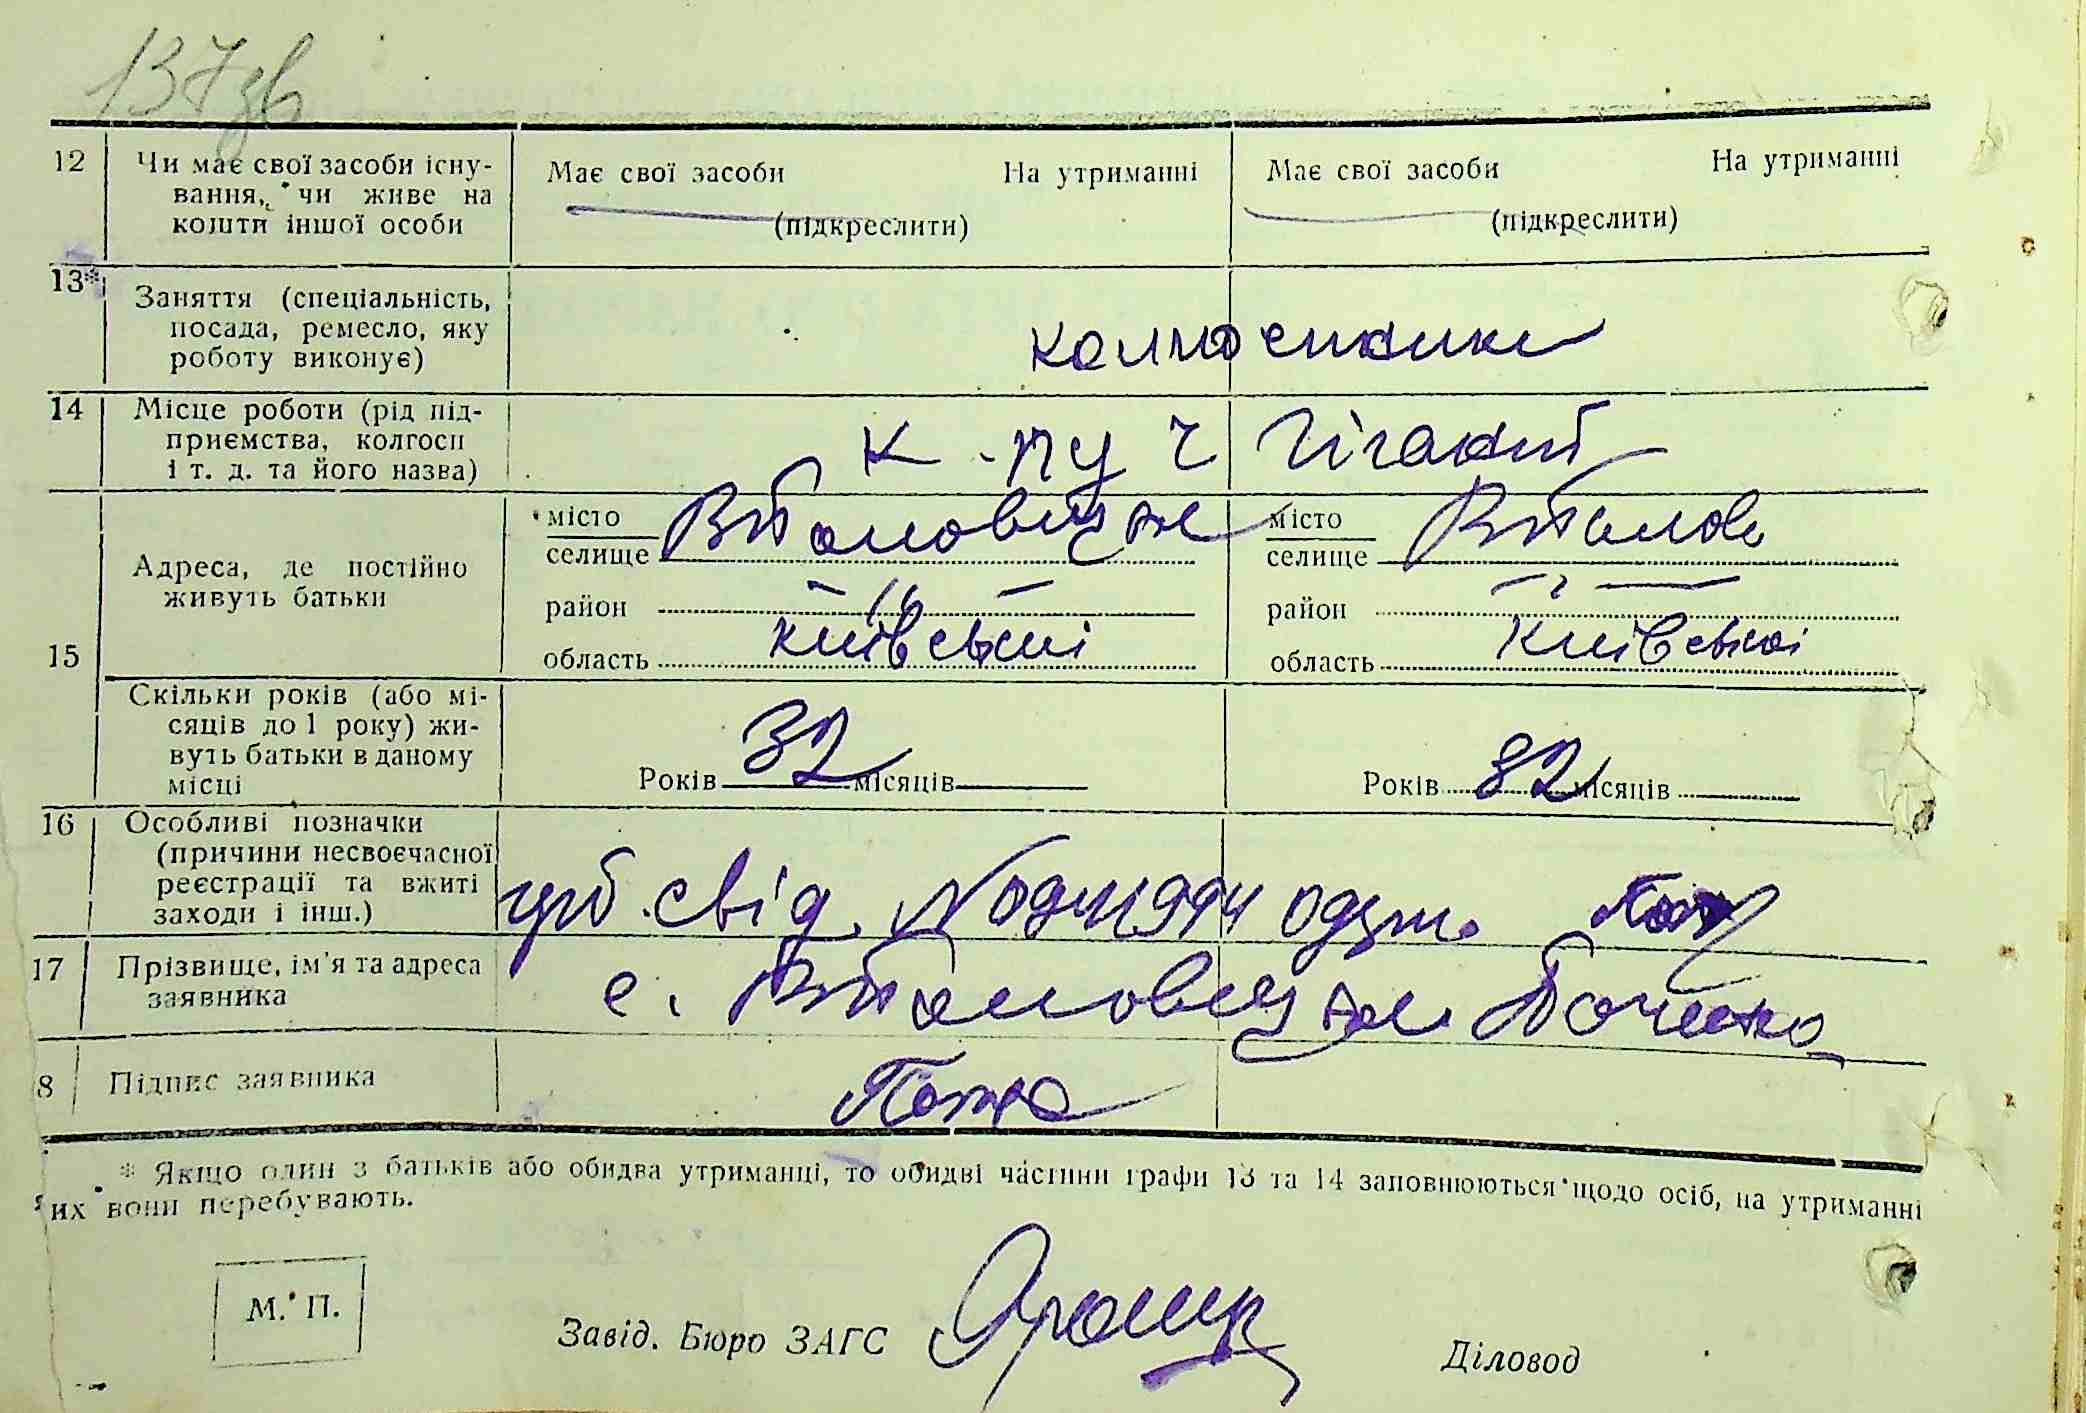 137зв
12 Чи має свої засоби існу-
вання, чи живе на
кошти іншої особи
Має свої засоби На утриманні
(підкреслити)
Має свої засоби На утриманні
(підкреслити)
13* Заняття (спеціальність,
посада, ремесло, яку
роботу виконує)
14 Місце роботи (рід під-
приємства, колгосп
і т. д. та його назва)
Гігант
15 Адреса, де постійно
живуть батьки
місто
селище
район
область Київські
місто
селище
район
область Київські
Скільки років (або мі-
сяців до 1 року) жи-
вуть батьки в даному
місці
Років 32 місяців
Років 32 місяців
16 Особливі позначки
(причини несвоєчасної
реєстрації та вжиті
заходи і інш.)
свід.
17 Прізвище, ім'я та адреса
заявника
с.
8 Підпис заявника
* Якщо один з батьків або обидва утриманці, то обидві частини графи 13 та 14 заповнюються щодо осіб, на утриманні
их вони перебувають.
М. П.
Завід. Бюро ЗАГС
Діловод